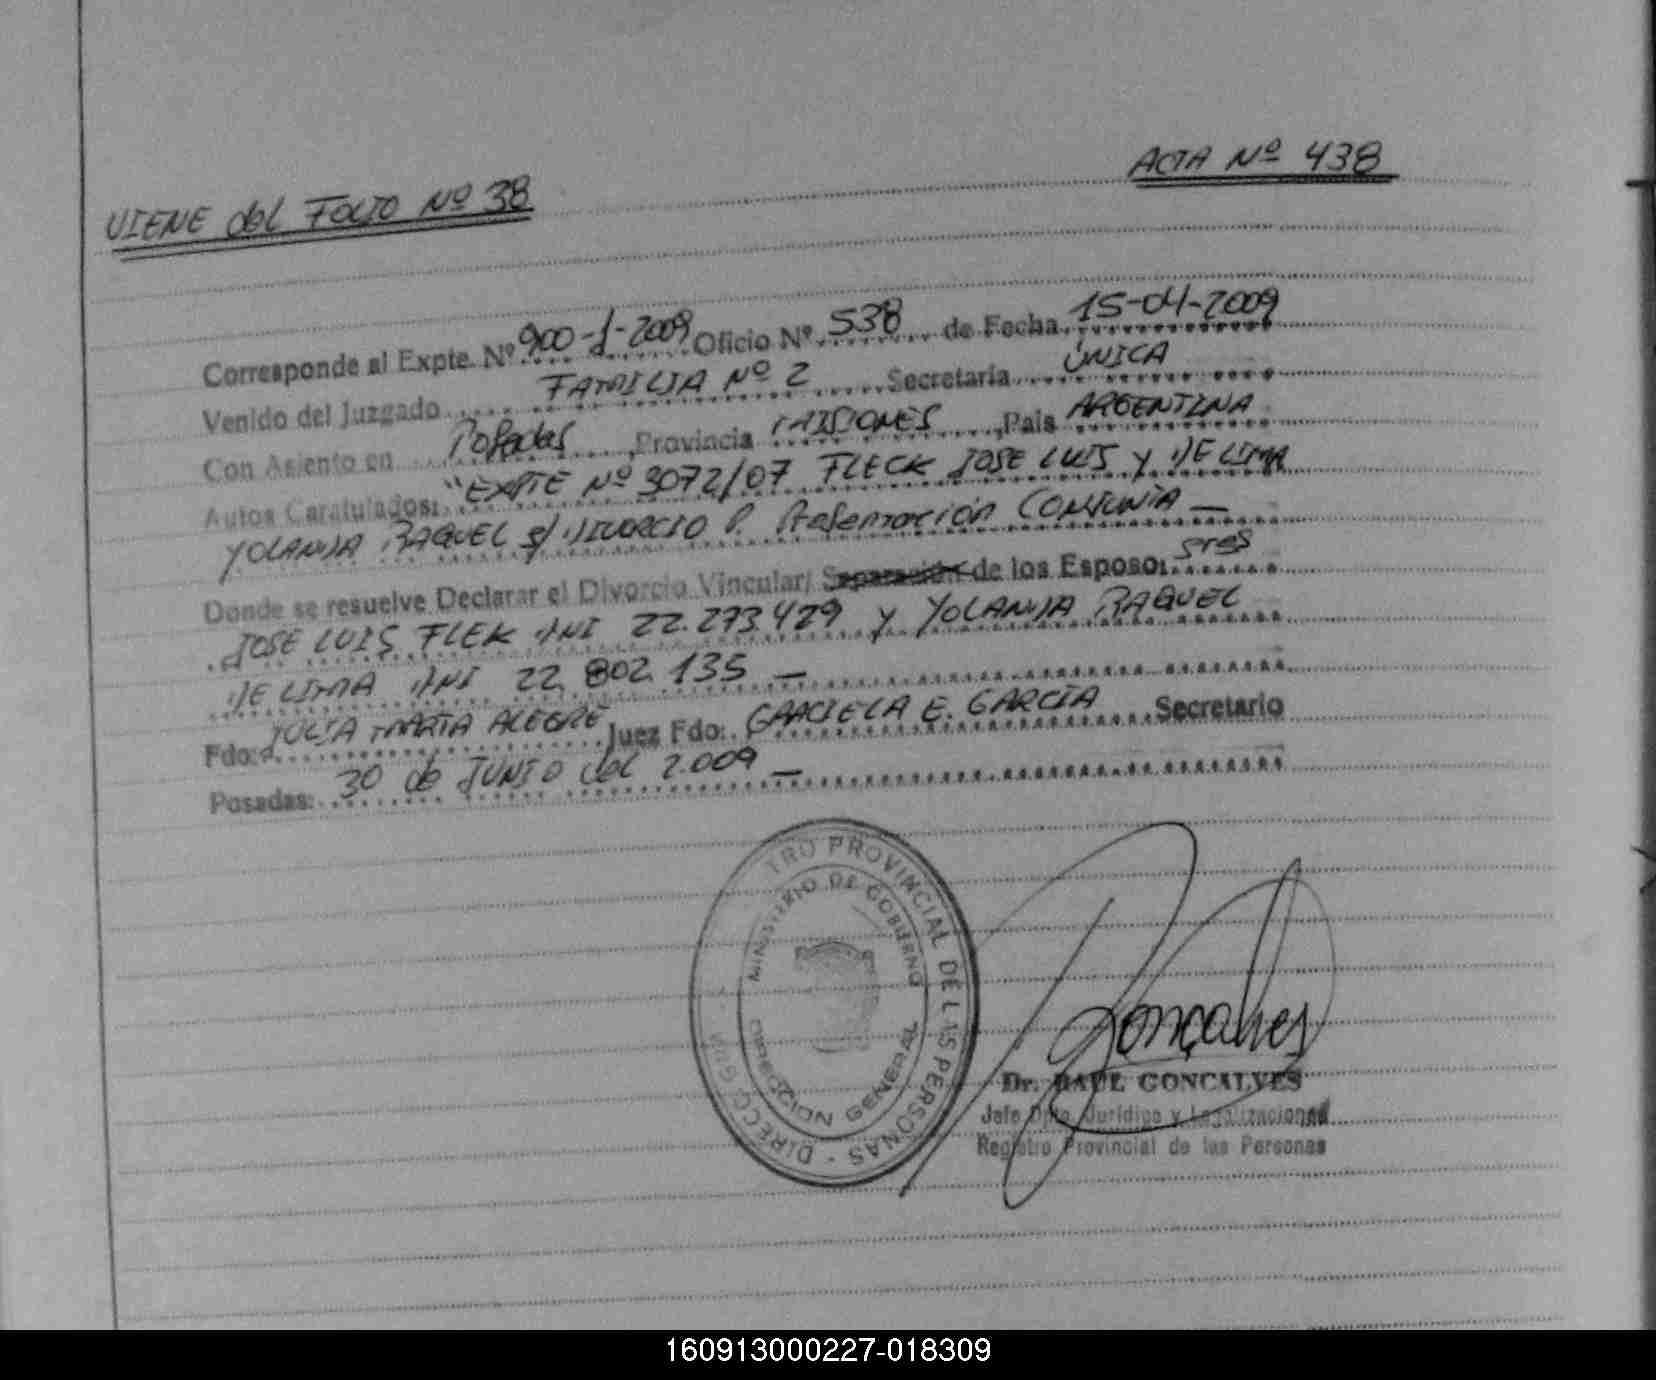 ACTA Nº 438
VIENE del FOLIO Nº 38
Corresponde al Expte. Nº 900-J-2009 Oficio Nº 538 de Fecha 15-04-2009
Venido del Juzgado FAMILIA Nº 2 Secretaría ÚNICA
Con Asiento en Posadas, Provincia MISIONES, País ARGENTINA
Autos Caratulados: "EXPTE Nº 3072/07 FLECK JOSE LUIS y DE LIMA
YOLANDA RAQUEL s/ DIVORCIO P. Presentación CONJUNTA —
Donde se resuelve Declarar el Divorcio Vincular/ Separación de los Esposo: sres
JOSE LUIS FLEK DNI 22.273.429 y YOLANDA RAQUEL
DE LIMA DNI 22.802.135 —
Fdo: JULIA MARTA ALEGRE Juez Fdo: GRACIELA E. GARCÍA Secretario
Posadas: 30 de JUNIO del 2.009 —
TRO PROVINCIAL DE LAS PERSONAS - DIRECC. GRAL
MINISTERIO DE GOBIERNO
DIRECCION GENERAL
Gonçalves
Dr. RAUL GONCALVES
Jefe Dpto. Jurídico y Legalizaciones
Registro Provincial de las Personas
160913000227-018309